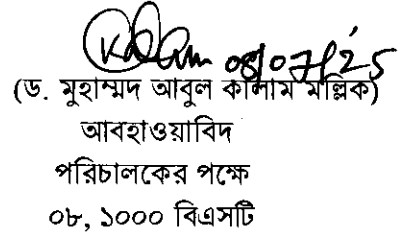 Kalam 08/07/25
(ড. মুহাম্মদ আবুল কালাম মল্লিক)
আবহাওয়াবিদ
পরিচালকের পক্ষে
০৮, ১০০০ বিএসটি